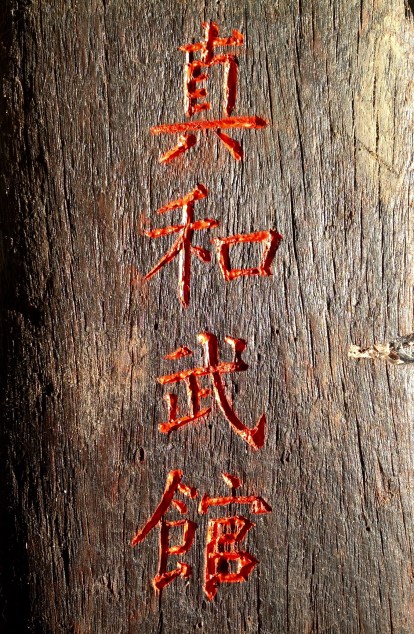 真和武館